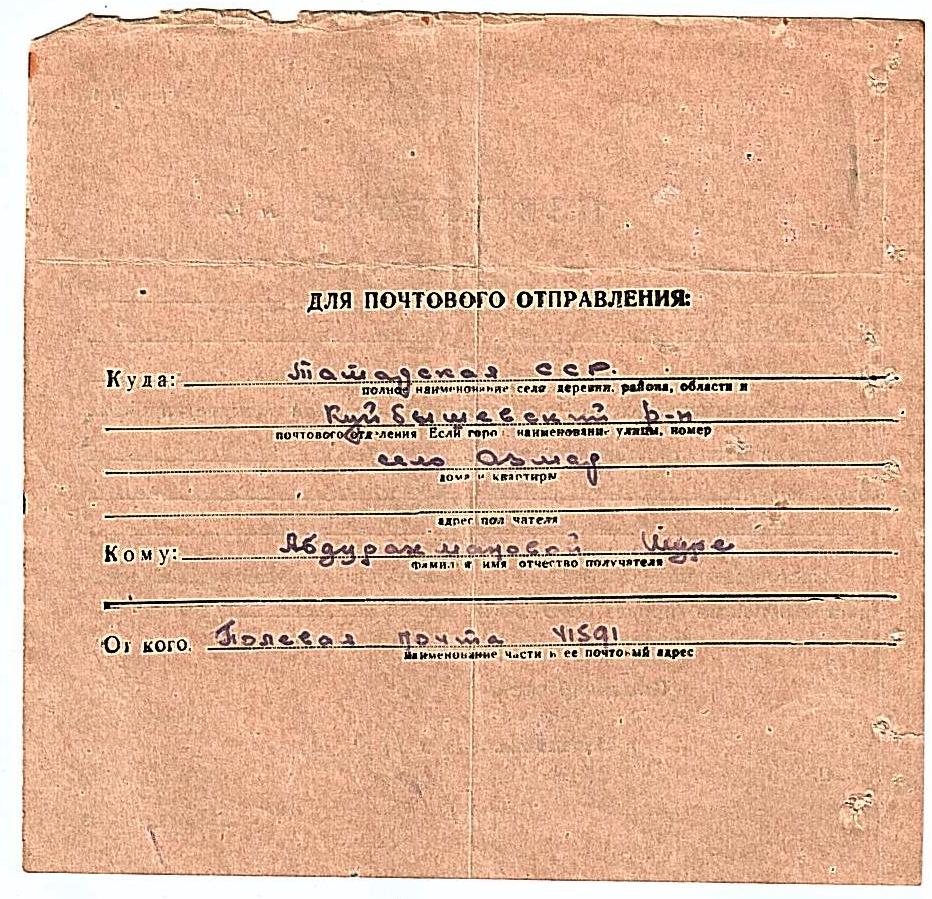 ДЛЯ ПОЧТОВОГО ОТПРАВЛЕНИЯ:
Куда: ССР.
полное наименование села деревни, района, области и
Куйбышевский р-н
почтового отделения Если город, наименование улицы, номер
село
дома и квартиры
адрес получателя
Кому: Абдурахмановой Шуре
фамилия имя отчество получателя
От кого. Полевая почта 41591
Наименование части и ее почтовый адрес